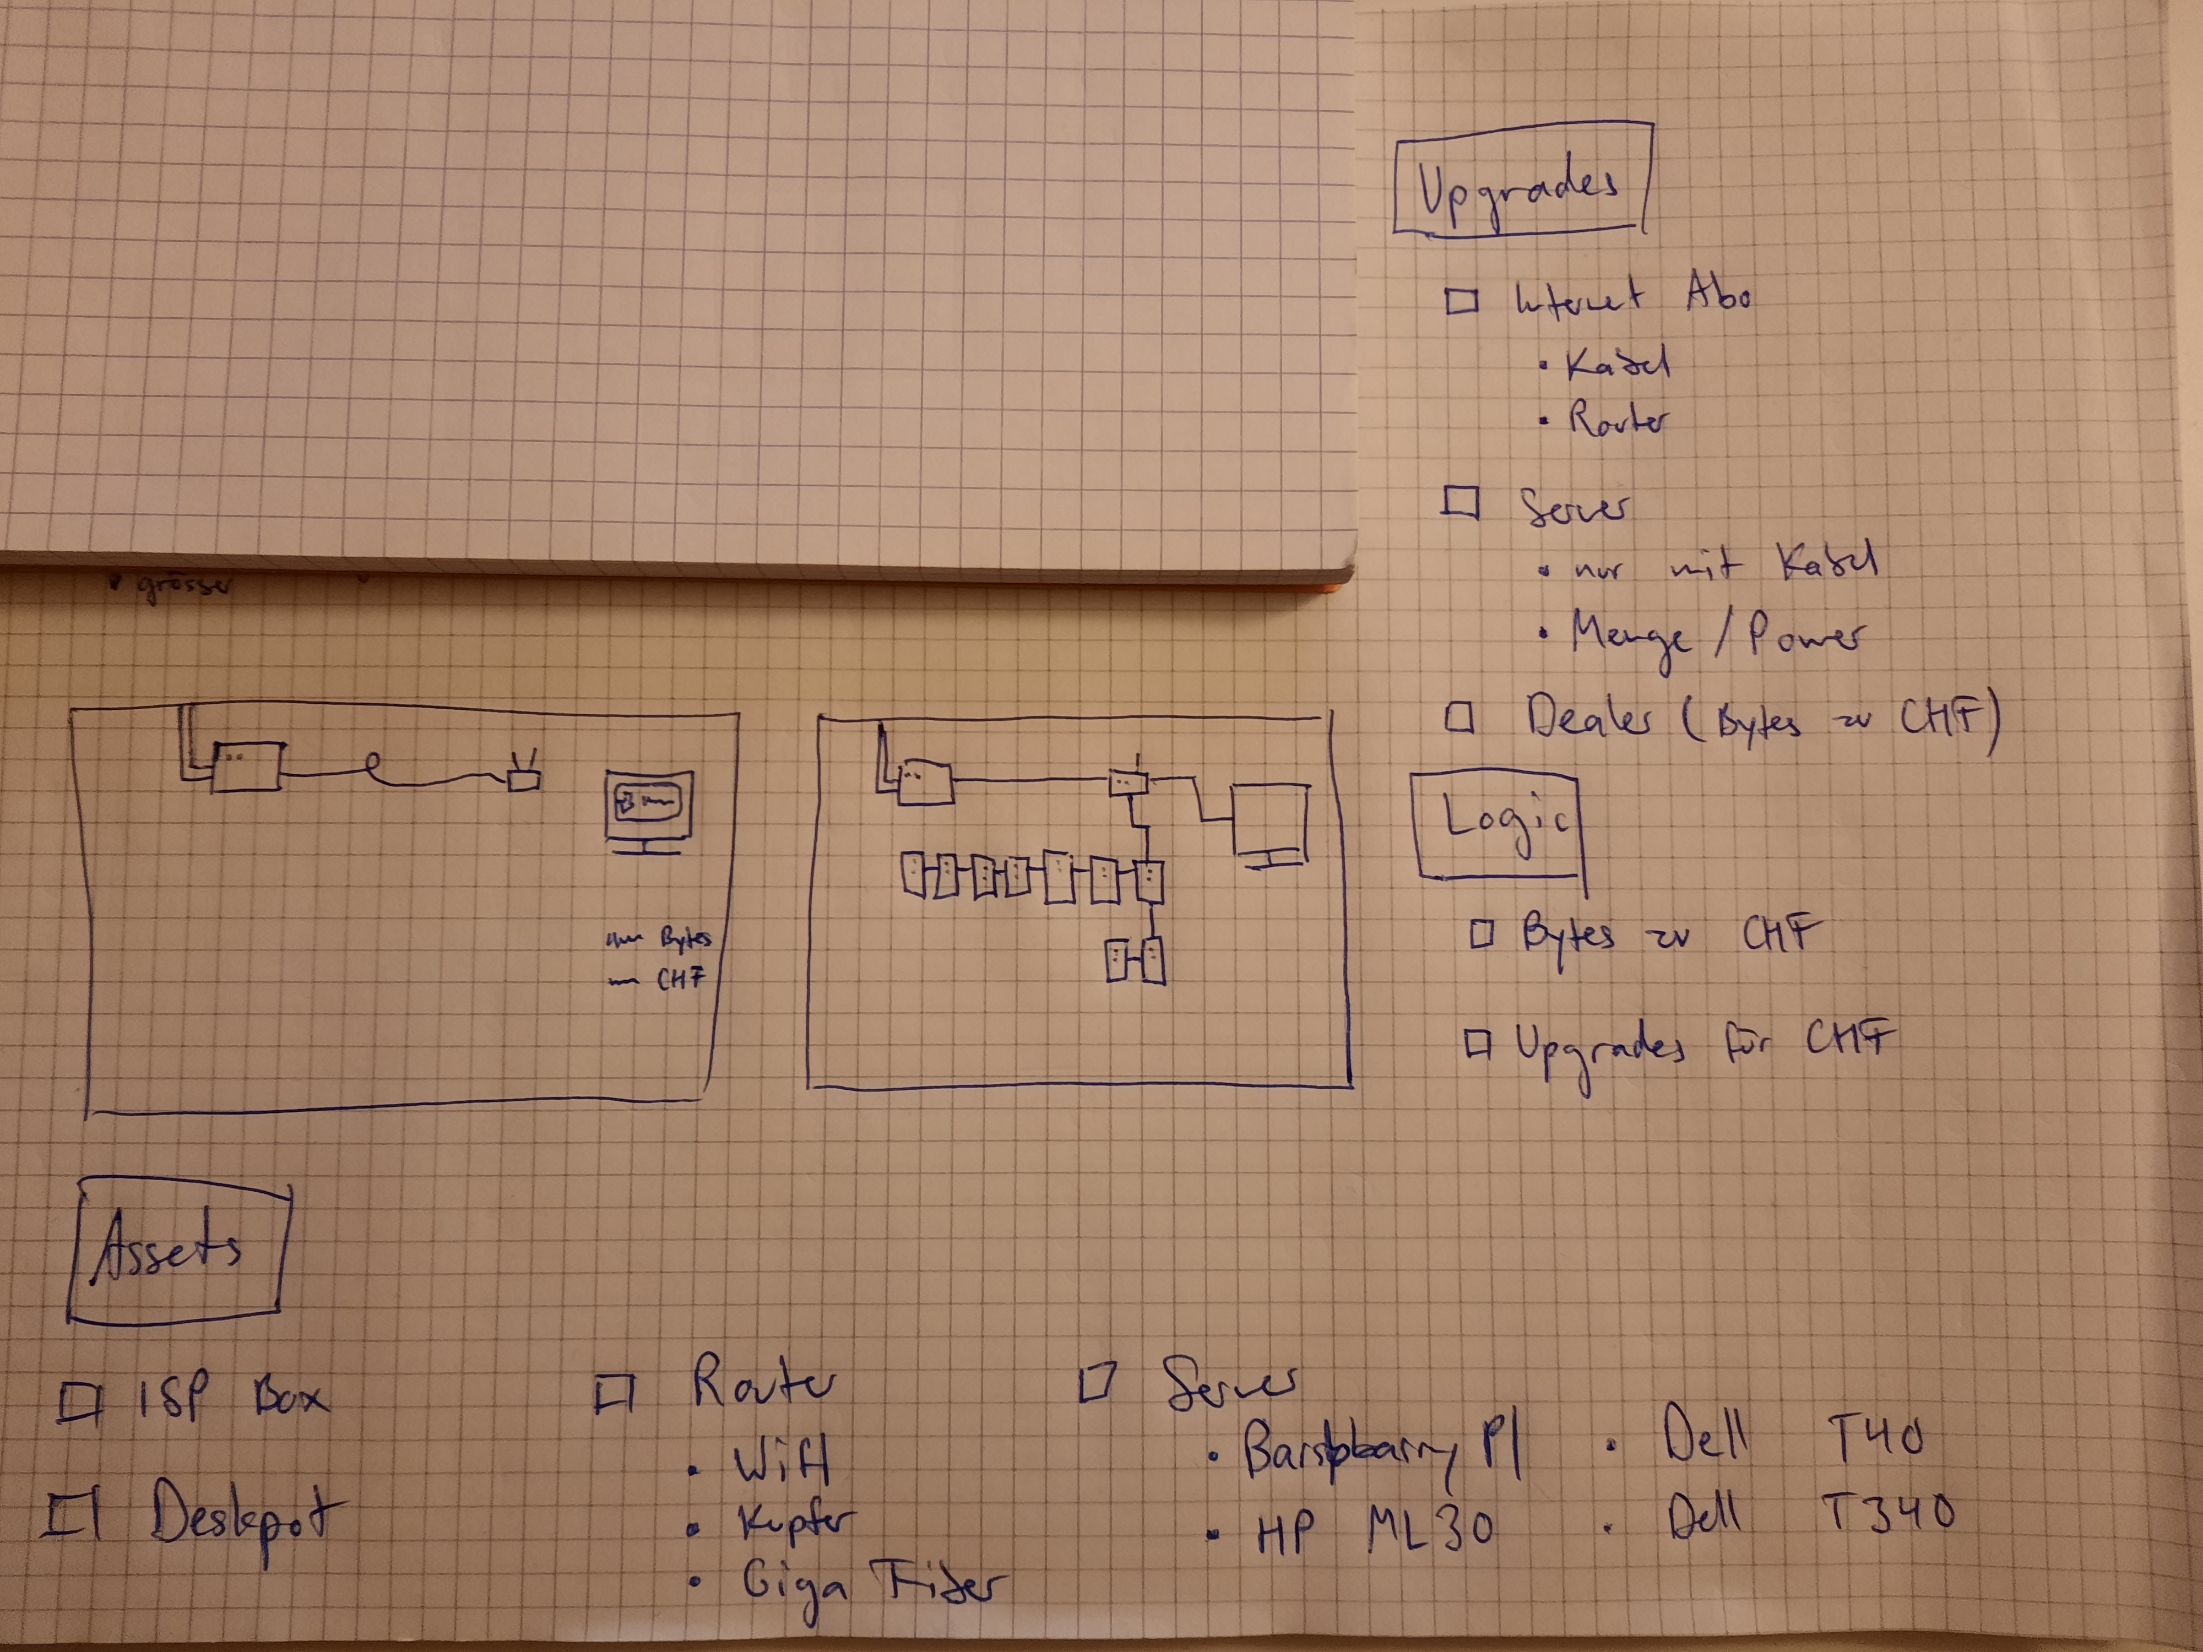 Upgrades
Internet Abo
• Kabel
• Router
Server
• nur mit Kabel
• Menge / Power
Dealer (Bytes zu CHF)
Logic
Bytes zu CHF
Upgrades für CHF
grösser
Bytes
CHF
Assets
ISP Box
Deskpot
Router
• Wifi
• Kupfer
• Giga Fiber
Server
• PI
• HP ML30
• Dell T40
• Dell T340